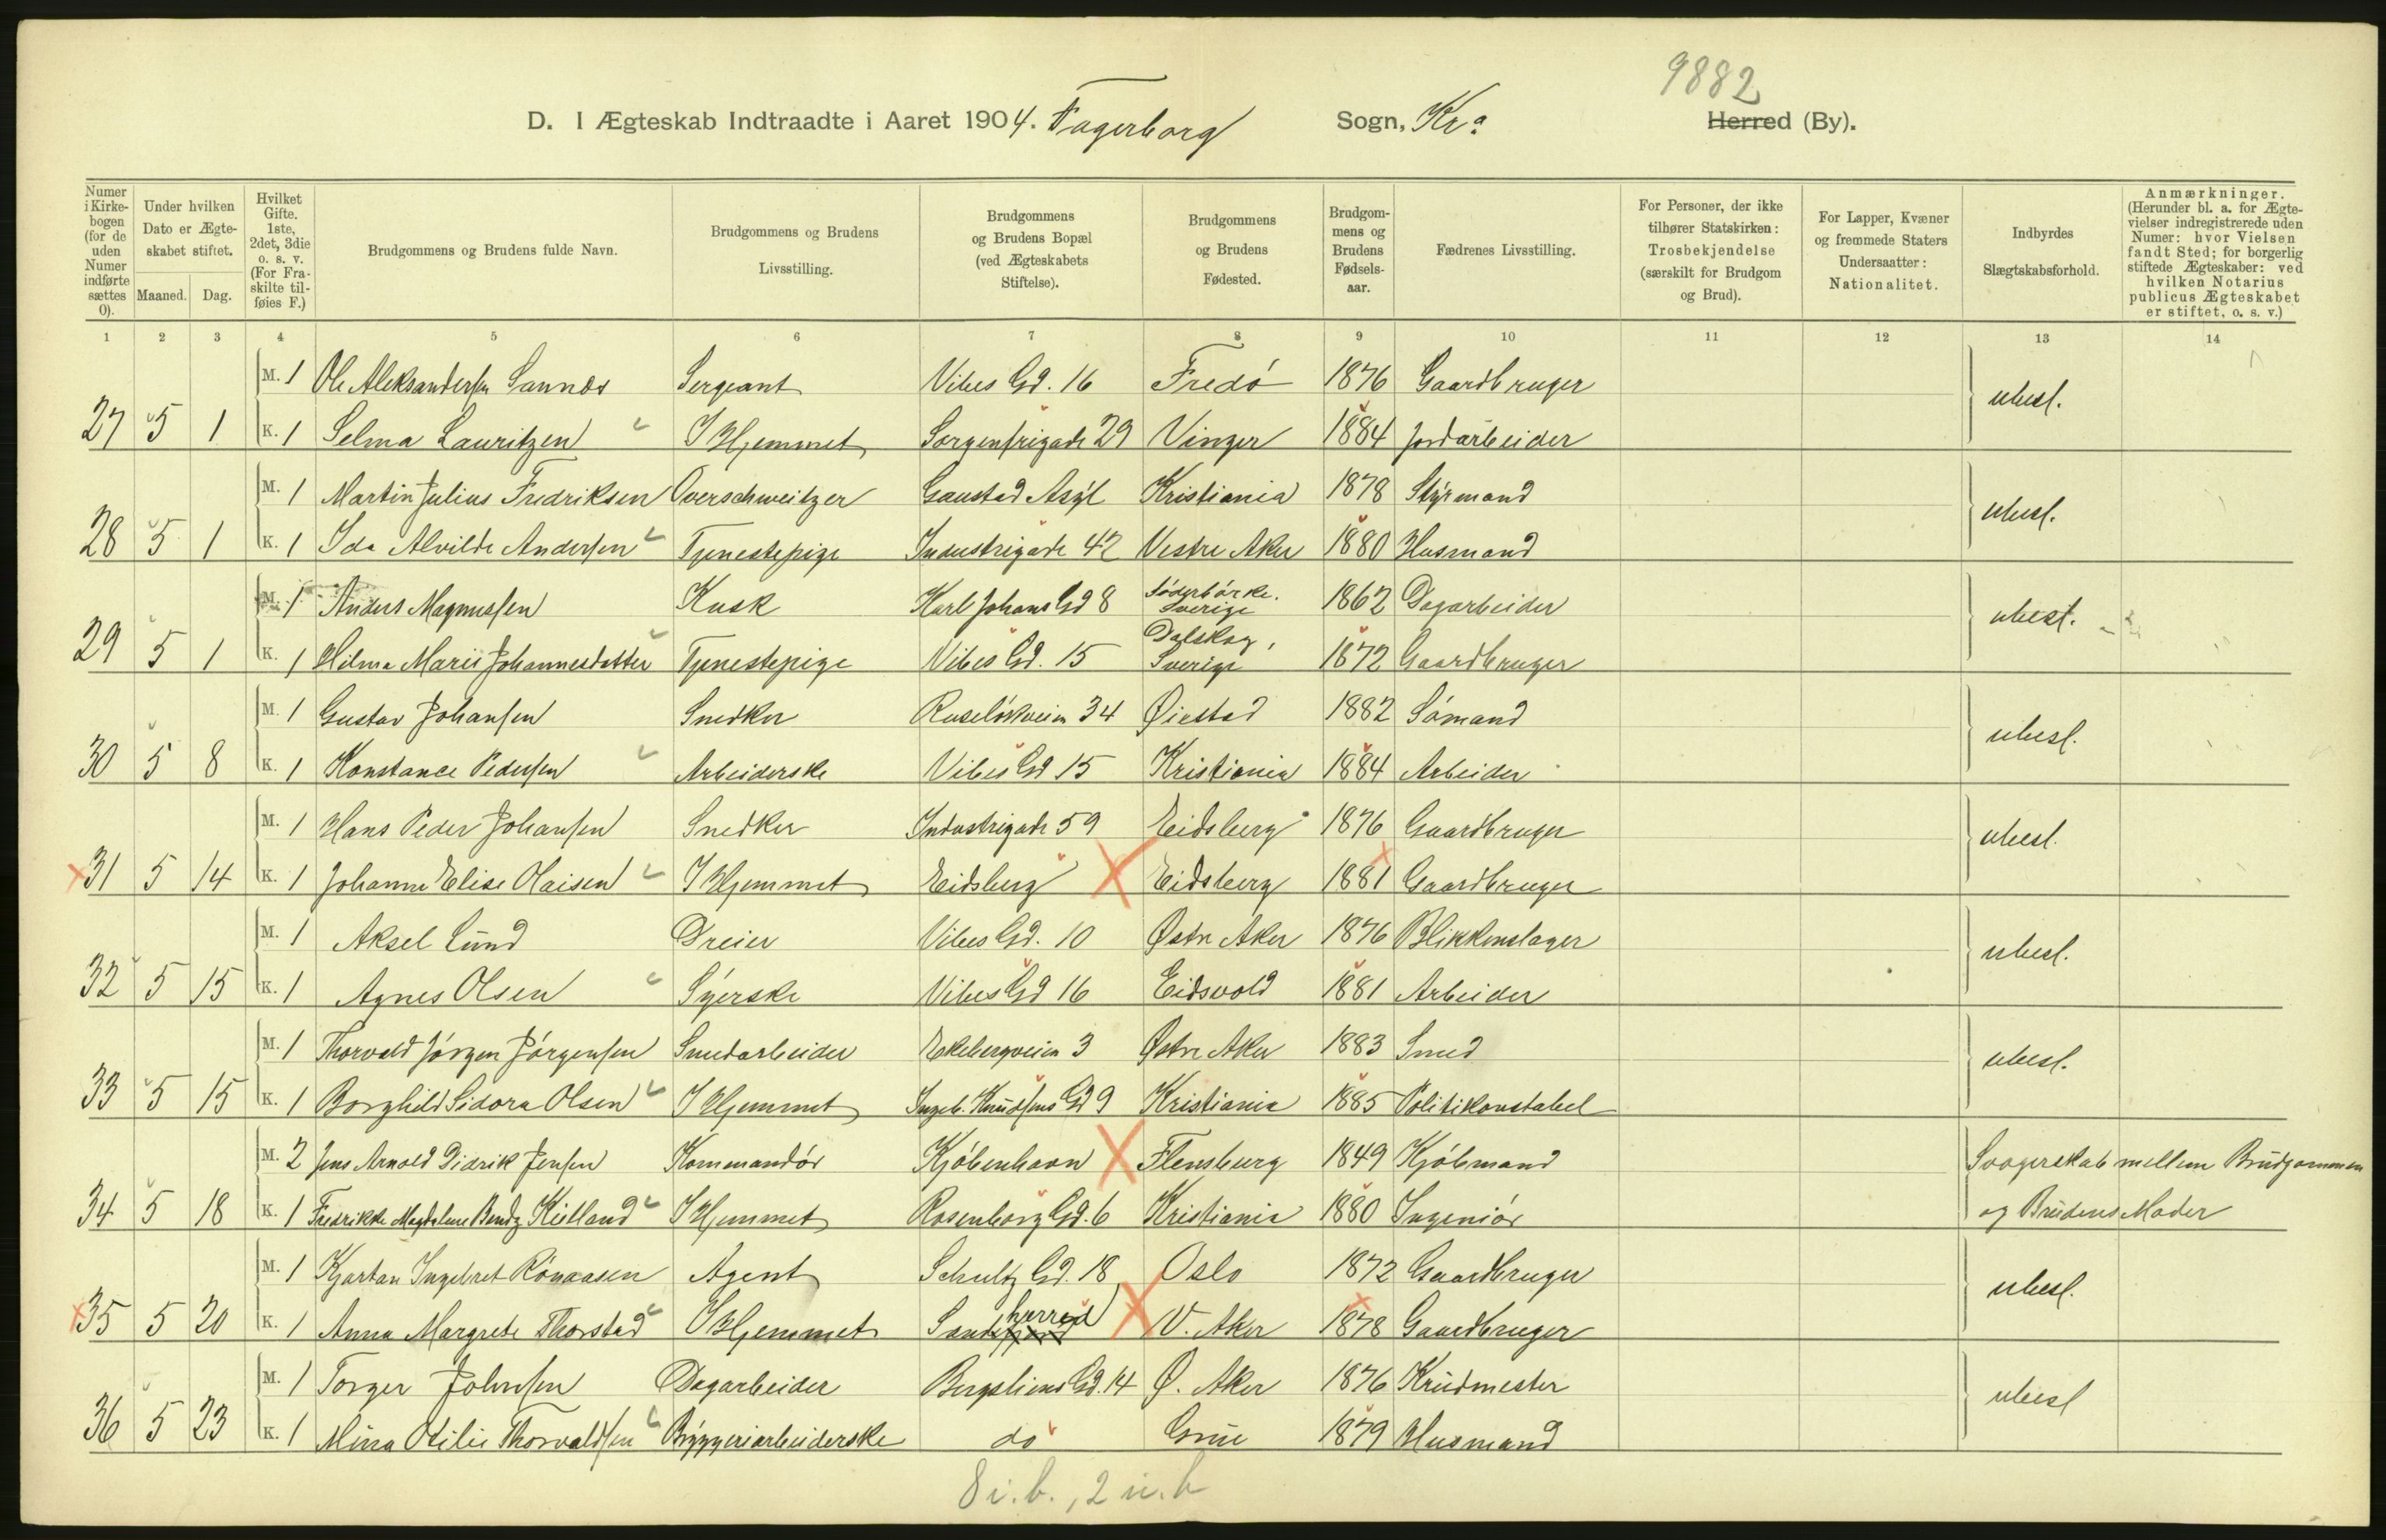 9882
D. I Ægteskab Indtraadte i Aaret 1904. Fagerborg Sogn, Kr.a Herred (By).
Numer i Kirkebogen (for de uden Numer indførte sættes 0).
Under hvilken Dato er Ægteskabet stiftet.
Maaned. Dag.
Hvilket Gifte. 1ste, 2det, 3die o. s. v. (For Fraskilte tilføies F.)
Brudgommens og Brudens fulde Navn.
Brudgommens og Brudens Livsstilling.
Brudgommens og Brudens Bopæl (ved Ægteskabets Stiftelse).
Brudgommens og Brudens Fødested.
Brudgommens og Brudens Fødselsaar.
Fædrenes Livsstilling.
For Personer, der ikke tilhører Statskirken: Trosbekjendelse (særskilt for Brudgom og Brud).
For Lapper, Kvæner og fremmede Staters Undersaatter: Nationalitet.
Indbyrdes Slægtskabsforhold.
Anmærkninger. (Herunder bl. a. for Ægtevielser indregistrerede uden Numer: hvor Vielsen fandt Sted; for borgerlig stiftede Ægteskaber: ved hvilken Notarius publicus Ægteskabet er stiftet, o. s. v.)
1 2 3 4 5 6 7 8 9 10 11 12 13 14
M. 1 Ole Aleksandersen Sannes Sergeant Vibes Gd. 16 Fredö 1876 Gaardbruger
27 5 1 K. 1 Selma Lauritzen I Hjemmet Sorgenfrigade 29 Vinger 1884 Jordarbeider ubesl.
M. 1 Martin Julius Fredriksen Overschweitzer Gaustad Asyl Kristiania 1878 Styrmand
28 5 1 K. 1 Ida Alvilde Andersen Tjenestepige Industrigade 42 Vestre Aker 1880 Husmand ubesl.
M. 1 Anders Magnussen Kusk Karl Johans Gd 8 Söderbärke. Sverige 1862 Dagarbeider
29 5 1 K. 1 Hilma Marie Johannesdatter Tjenestepige Vibes Gd. 15 Dalskog, Sverige 1872 Gaardbruger ubesl.
M. 1 Gustav Johansen Snedker Ruselökveien 34 Øiestad 1882 Sömand
30 5 8 K. 1 Konstance Pedersen Arbeiderske Vibes Gd 15 Kristiania 1884 Arbeider ubesl.
M. 1 Hans Peder Johansen Snedker Industrigade 59 Eidsberg 1876 Gaardbruger
31 5 14 K. 1 Johanne Elise Olaisen I Hjemmet Eidsberg Eidsberg 1881 Gaardbruger ubesl.
M. 1 Aksel Lund Dreier Vibes Gd. 10 Østre Aker 1876 Blikkenslager
32 5 15 K. 1 Agnes Olsen Syerske Vibes Gd 16 Eidsvold 1881 Arbeider ubesl.
M. 1 Thorvald Jörgen Jörgensen Smedarbeider Ekebergveien 3 Østre Aker 1883 Smed
33 5 15 K. 1 Borghild Sidora Olsen I Hjemmet Ingeb. Knudsens Gd 9 Kristiania 1885 Politikonstabel ubesl.
M. 2 Jens Arnold Didrik Jensen Kommandör Kjöbenhavn Flensburg 1849 Kjöbmand Svogerskab mellem Brudgommen
34 5 18 K. 1 Fredrikke Magdalene Bendz Kielland I Hjemmet Rosenborg Gd. 6 Kristiania 1880 Ingeniör og Brudens Moder
M. 1 Kjartan Ingebret Rönaasen Agent Schultz Gd. 18 Oslo 1872 Gaardbruger
35 5 20 K. 1 Anna Margrete Thorstad I Hjemmet Sandeherred V. Aker 1878 Gaardbruger ubesl.
M. 1 Torger Johnsen Dagarbeider Bergsliens Gd. 14 Ø. Aker 1876 Krudmester
36 5 23 K. 1 Mina Otilie Thorvaldsen Bryggeriarbeiderske do Grue 1879 Husmand ubesl
8 i. b., 2 u. b